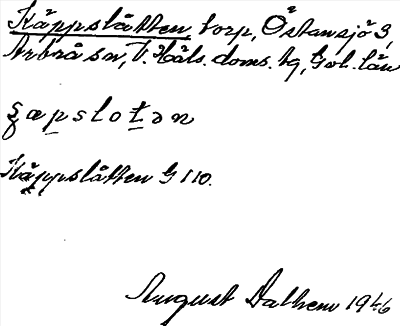 Käppslåtten, torp, Östansjö 3,
Arbrå sn, V. Häls. doms. tg, Gvl. län
ʂæpslotən
Käppslåtten G 110.
August Dalhem 1946